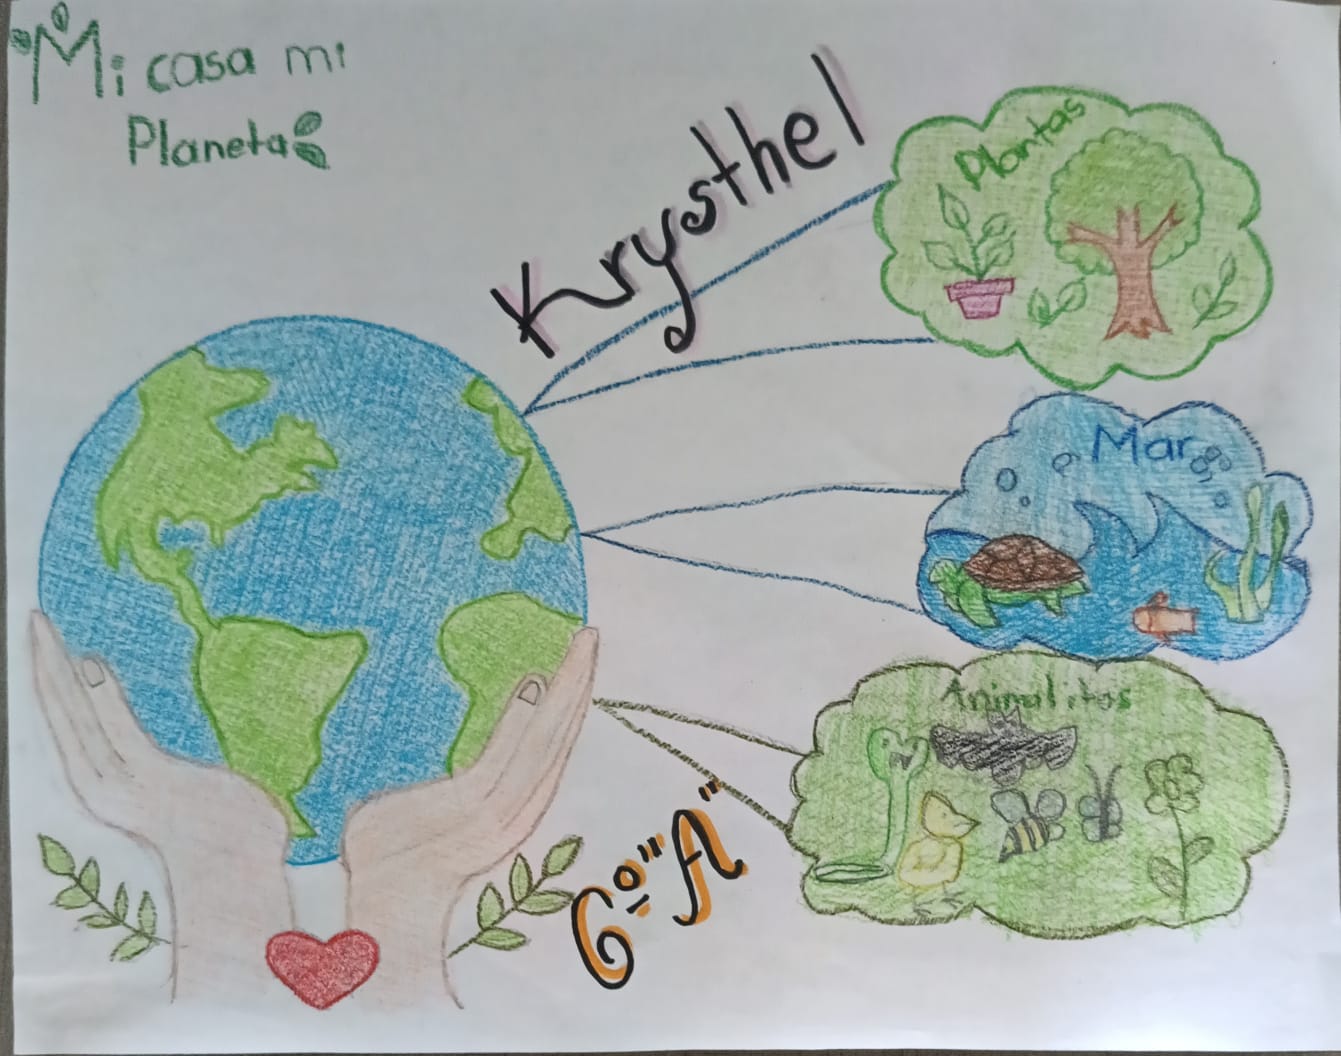 Mi casa mi
Planeta
Krysthel
Plantas
Mar
Animalitos
6º "A"